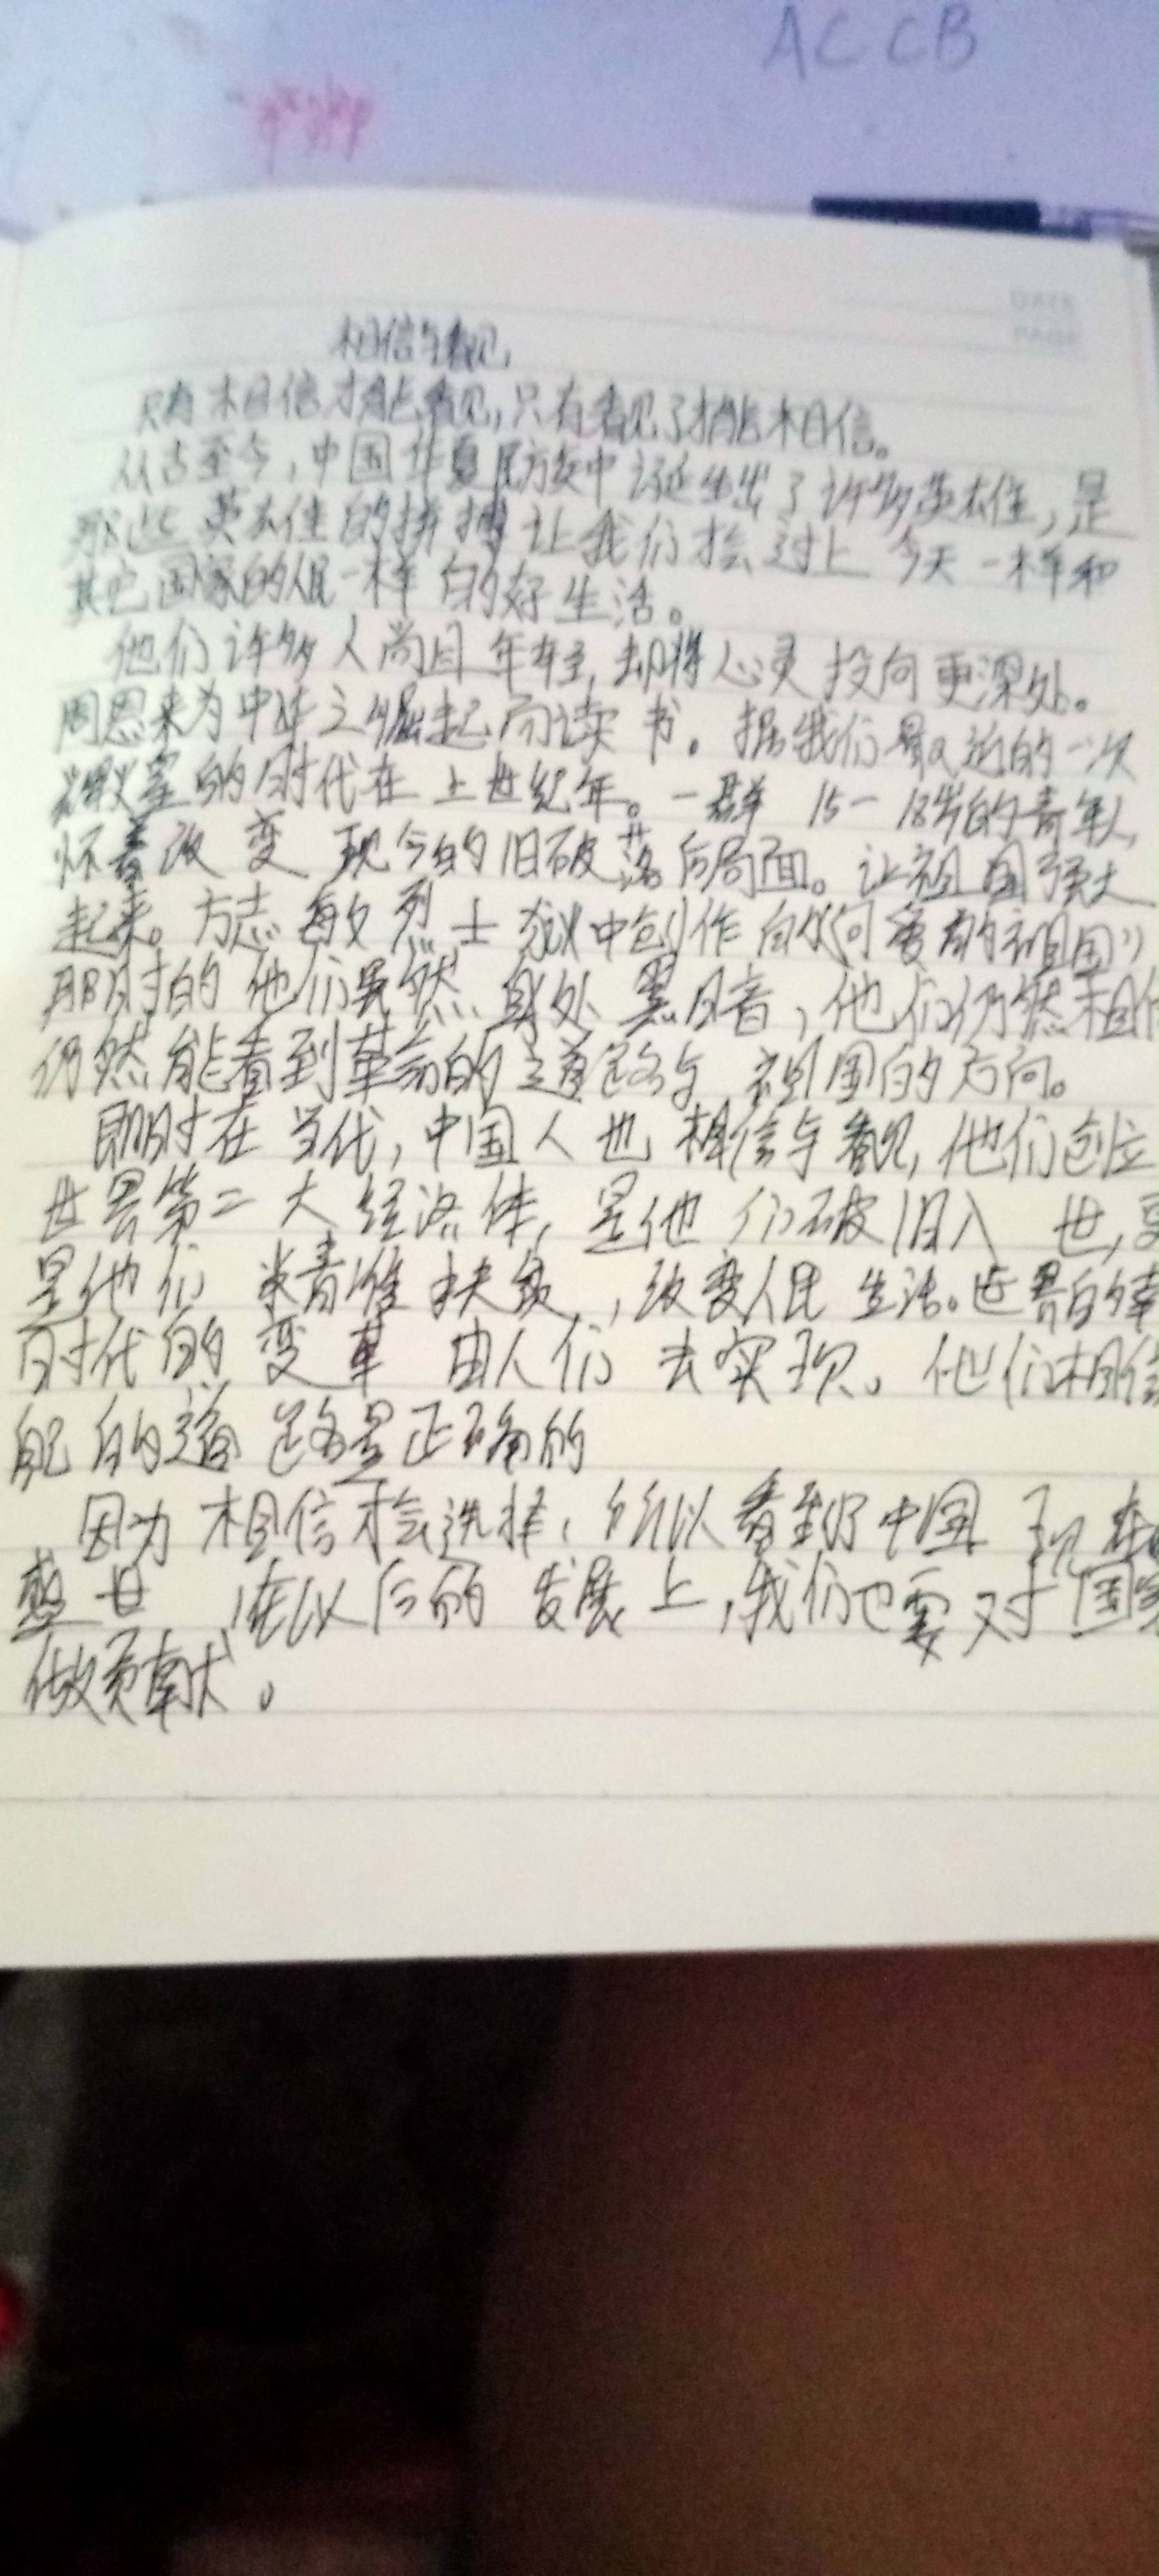 ACCB
DATE
PAGE
相信与看见
只有相信才能看见,只有看见了才能相信。
从古至今,中国华夏民族中诞生出了许多英雄,是
那些英雄的拼搏让我们才会过上今天一样和
其它国家的人民一样的好生活。
他们许多人尚且年轻,却将心灵投向更深处。
周恩来为中华之崛起而读书。据我们最近的一次
的时代在上世纪年。一群15一18岁的青年人,
怀着改变现今的旧破落后局面。让祖国强大
起来。方志敏烈士狱中创作《可爱的祖国》
那时的他们虽然身处黑暗,他们仍然相信
仍然能看到革命的道路与祖国的方向。
即时在当代,中国人也相信与看见,他们创立
世界第二大经济体,是他们破旧入世,
是他们精准扶贫,改变人民生活。世界的
时代的变革由人们去实现。他们相信
自己的道路是正确的
因为相信才会选择,所以看到了中国现在
盛世 在以后的发展上,我们也需要对国家
做贡献。